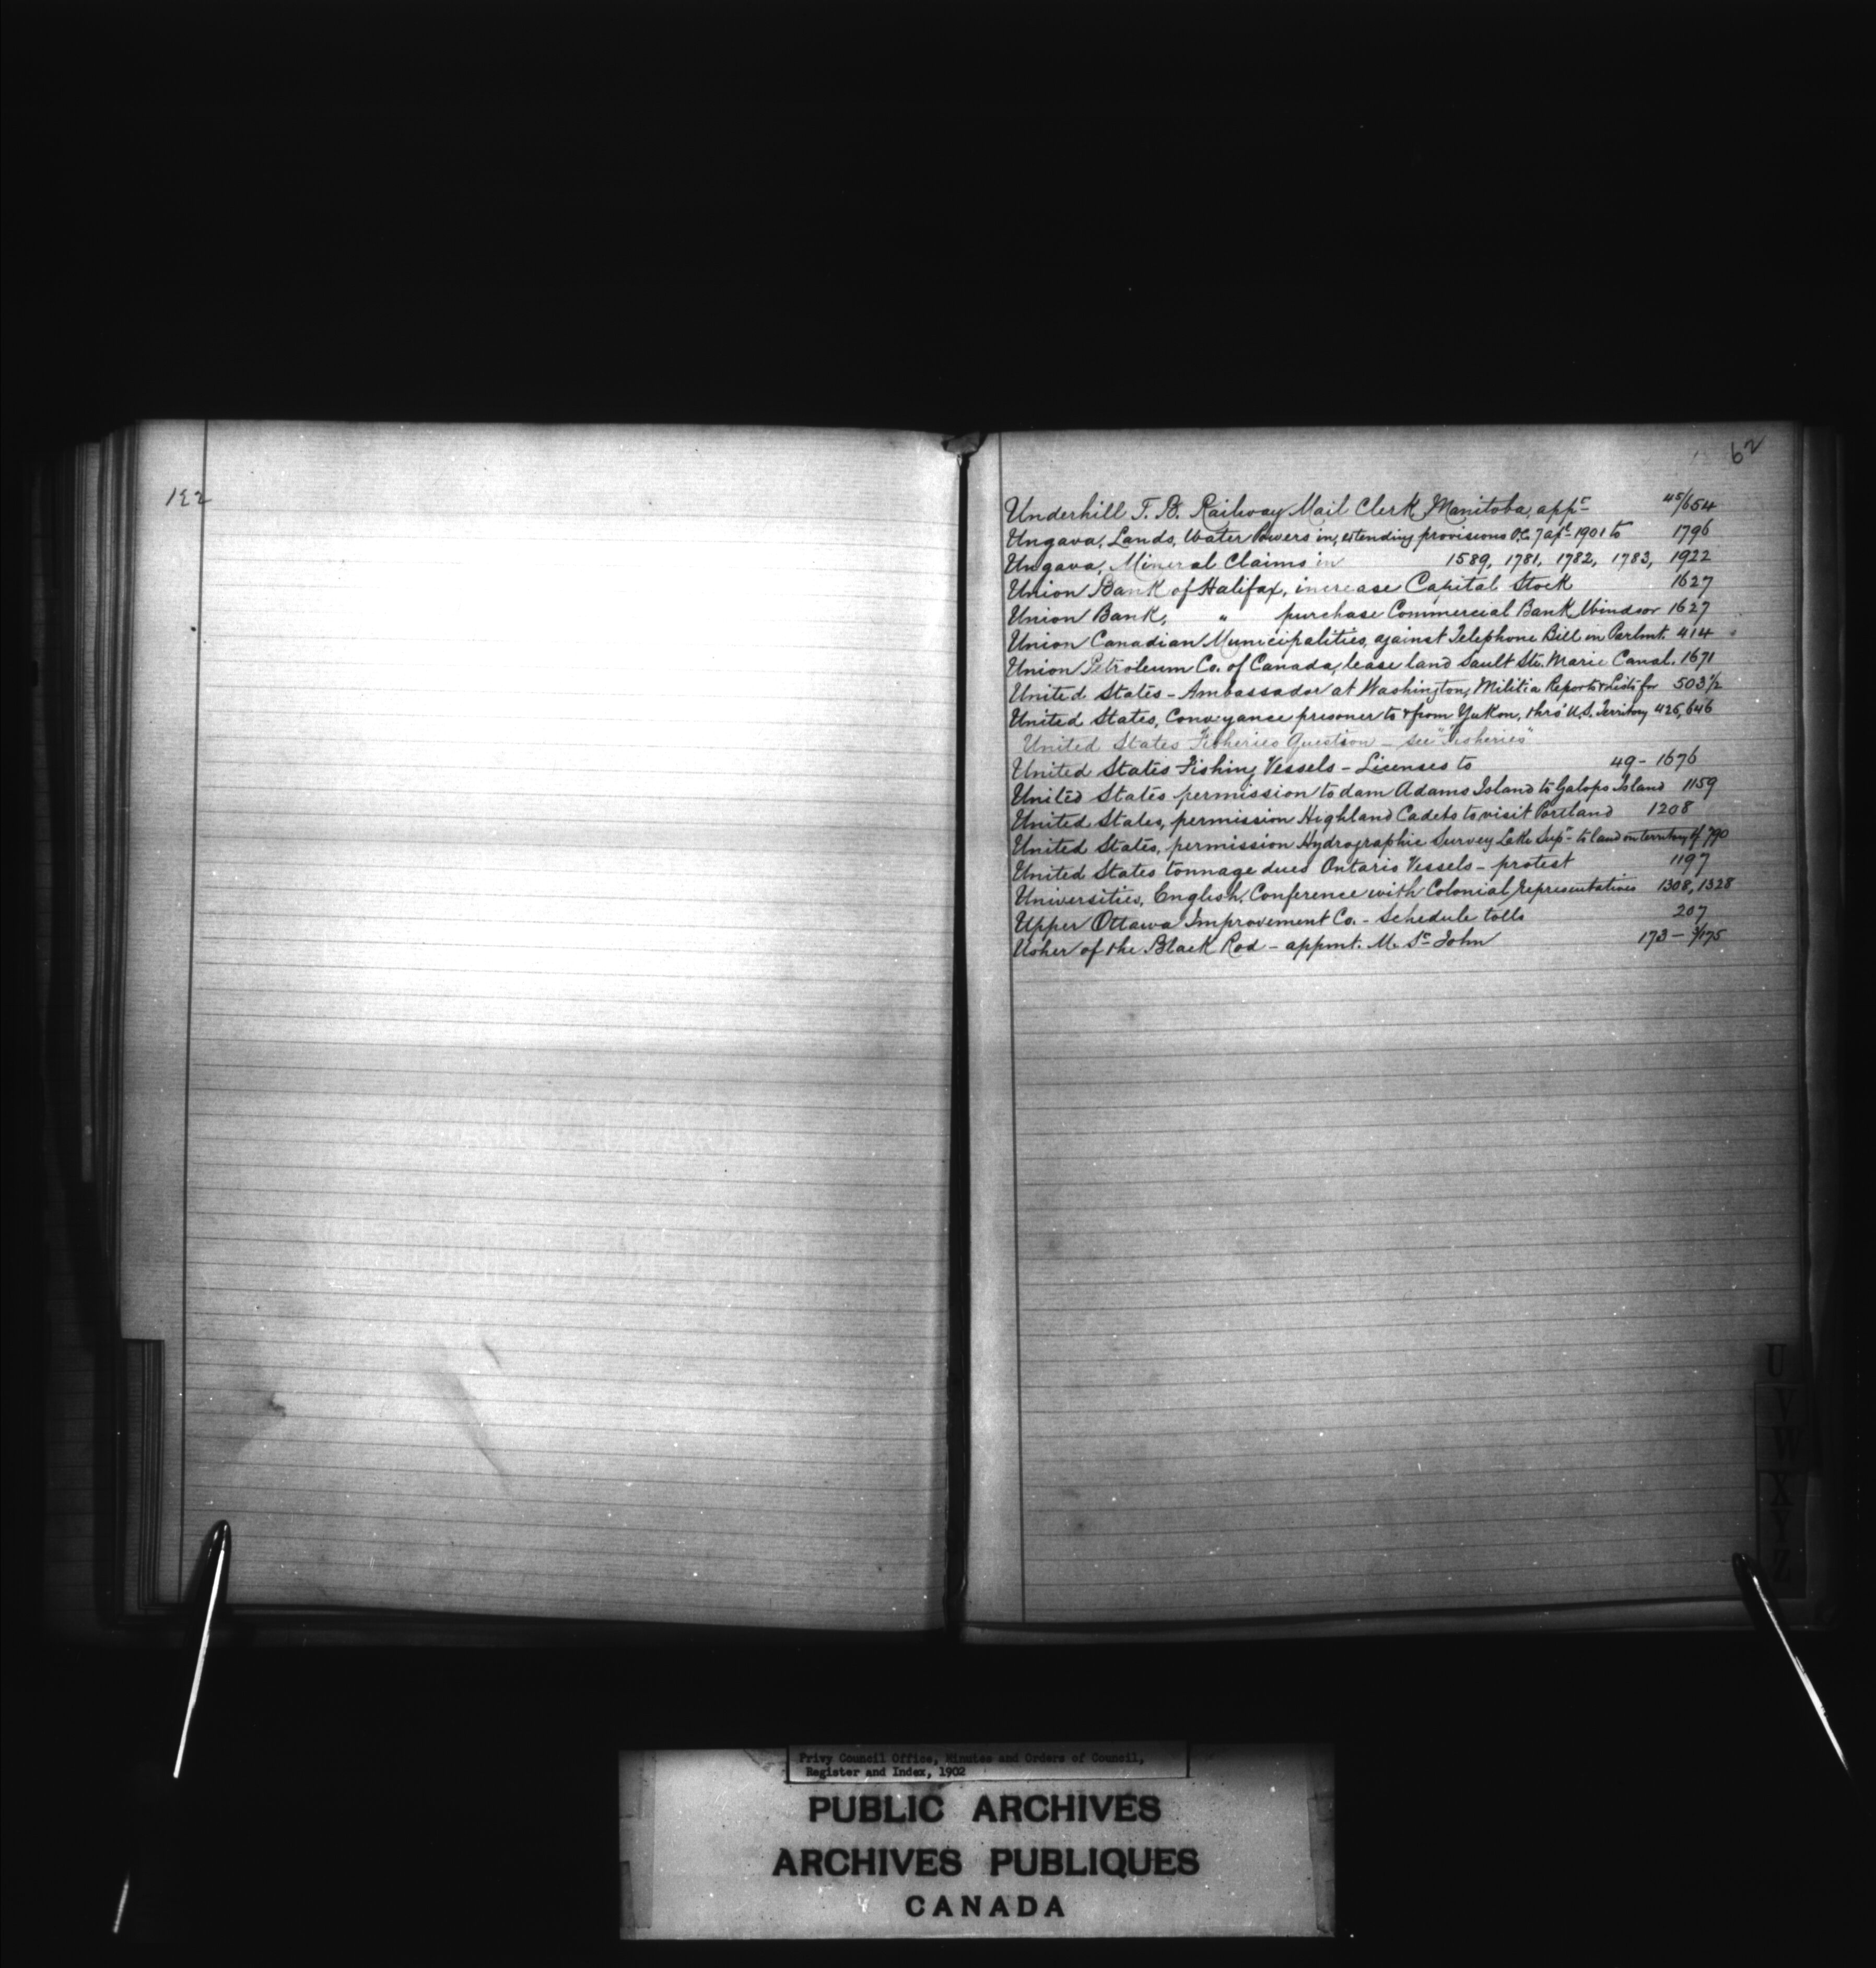 122
62
Underhill T. B. Railway Mail Clerk Manitoba, appt 45/654
Ungava, Lands, Water Powers in, extending provisions O.C. 7 Apl 1901 to 1796
Ungava, Mineral Claims in 1589, 1781, 1782, 1783, 1922
Union Bank of Halifax, increase Capital Stock 1627
Union Bank, " purchase Commercial Bank Windsor 1627
Union Canadian Municipalities, against Telephone Bill in Parlmt. 414
Union Petroleum Co. of Canada, lease land Sault Ste. Marie Canal. 1671
United States - Ambassador at Washington, Militia Reports & Lists for 503½
United States, Conveyance prisoner to & from Yukon, thro' U.S. Territory 426, 646
United States Fisheries Question - see "Fisheries"
United States Fishing Vessels - Licenses to 49 - 1676
United States permission to dam Adams Island to Galops Island 1159
United States, permission Highland Cadets to visit Portland 1208
United States, permission Hydrographic Survey Lake Supr to land on territory of 790
United States tonnage dues Ontario Vessels - protest 1197
Universities, English, Conference with Colonial representatives 1308, 1328
Upper Ottawa Improvement Co. - Schedule tolls 207
Usher of the Black Rod - appmt. M. St John 173 - 3/175
U
V
W
X
Y
Z
Privy Council Office, Minutes and Orders of Council,
Register and Index, 1902
PUBLIC ARCHIVES
ARCHIVES PUBLIQUES
CANADA